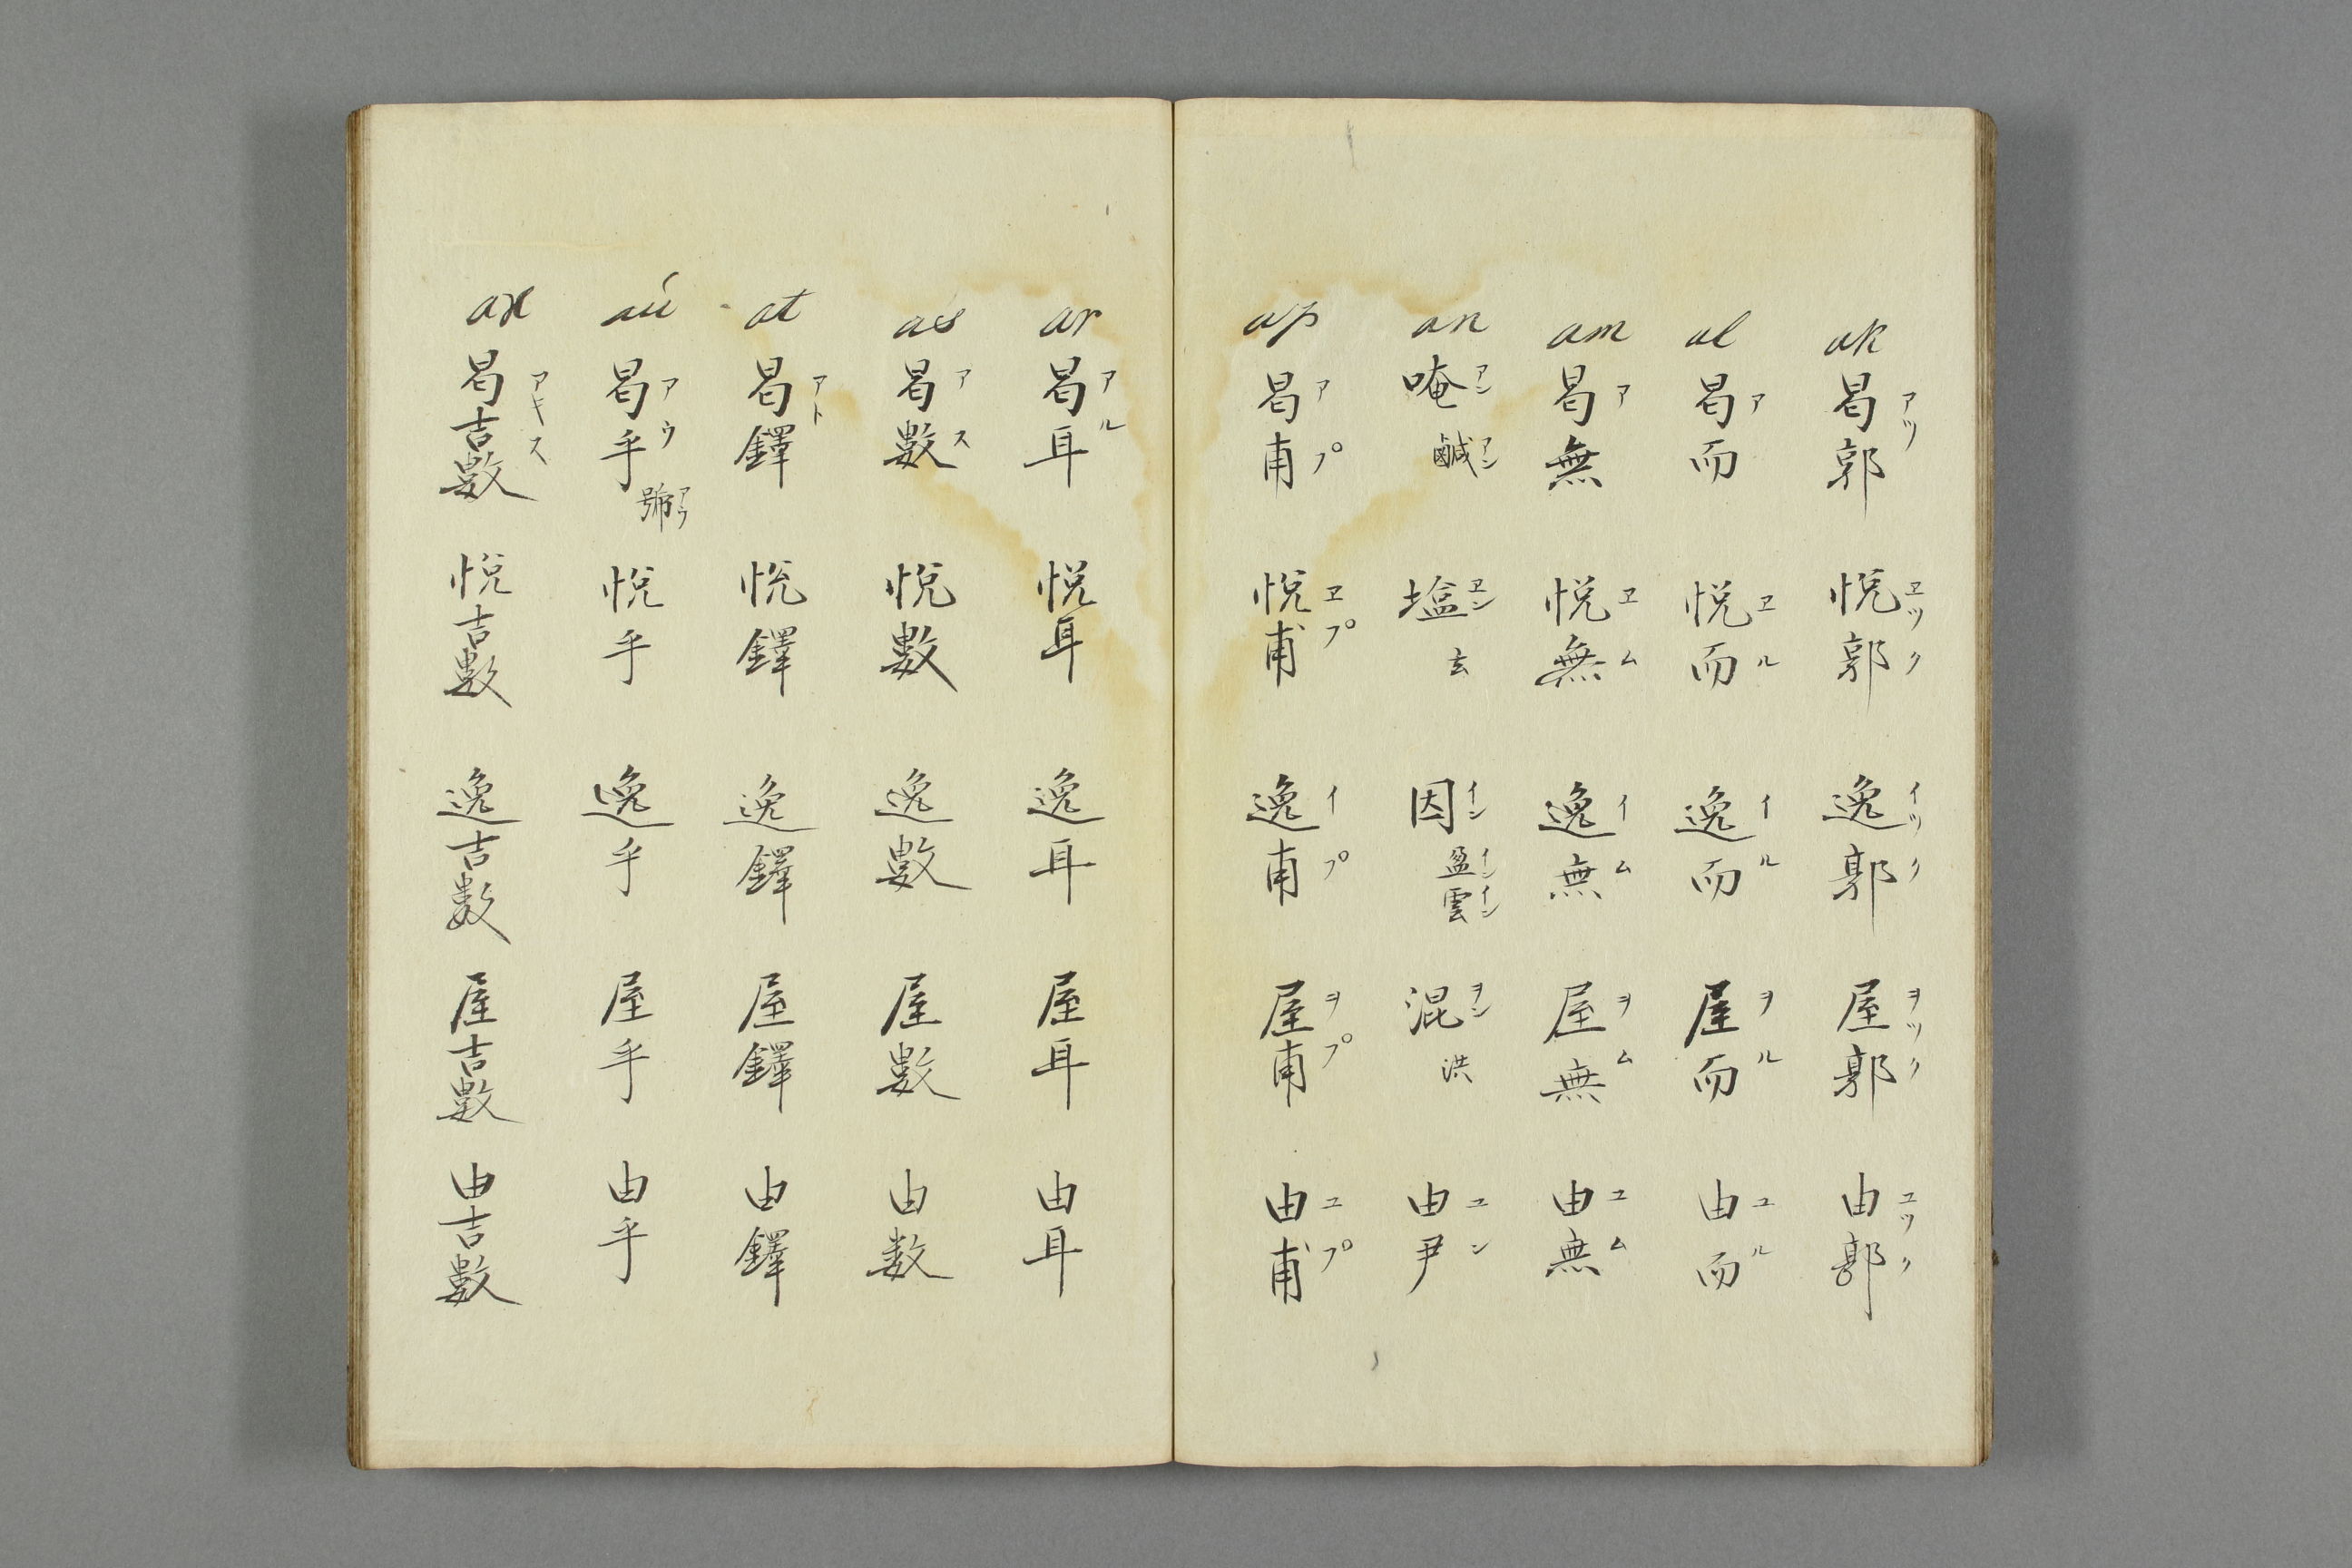 ak 曷郭 アツ 悦郭 ヱツク 逸郭 イツク 屋郭 ヲツク 由郭 ユツク
al 曷而 ア 悦而 ヱル 逸而 イル 屋而 ヲル 由而 ユル
am 曷無 ア 悦無 ヱム 逸無 イム 屋無 ヲム 由無 ユム
an 唵 アン 鹹 アン 塩 ヱン 玄 因 イン 盈 イン 雲 イン 混 ヲン 洪 由尹 ユン
ap 曷甫 アプ 悦甫 ヱプ 逸甫 イプ 屋甫 ヲプ 由甫 ユプ
ar 曷耳 アル 悦耳 逸耳 屋耳 由耳
as 曷數 アス 悦數 逸數 屋數 由数
at 曷鐸 アト 悦鐸 逸鐸 屋鐸 由鐸
aú 曷乎 アウ 號 アウ 悦乎 逸乎 屋乎 由乎
ax 曷吉數 アキス 悦吉數 逸吉数 屋吉數 由吉數